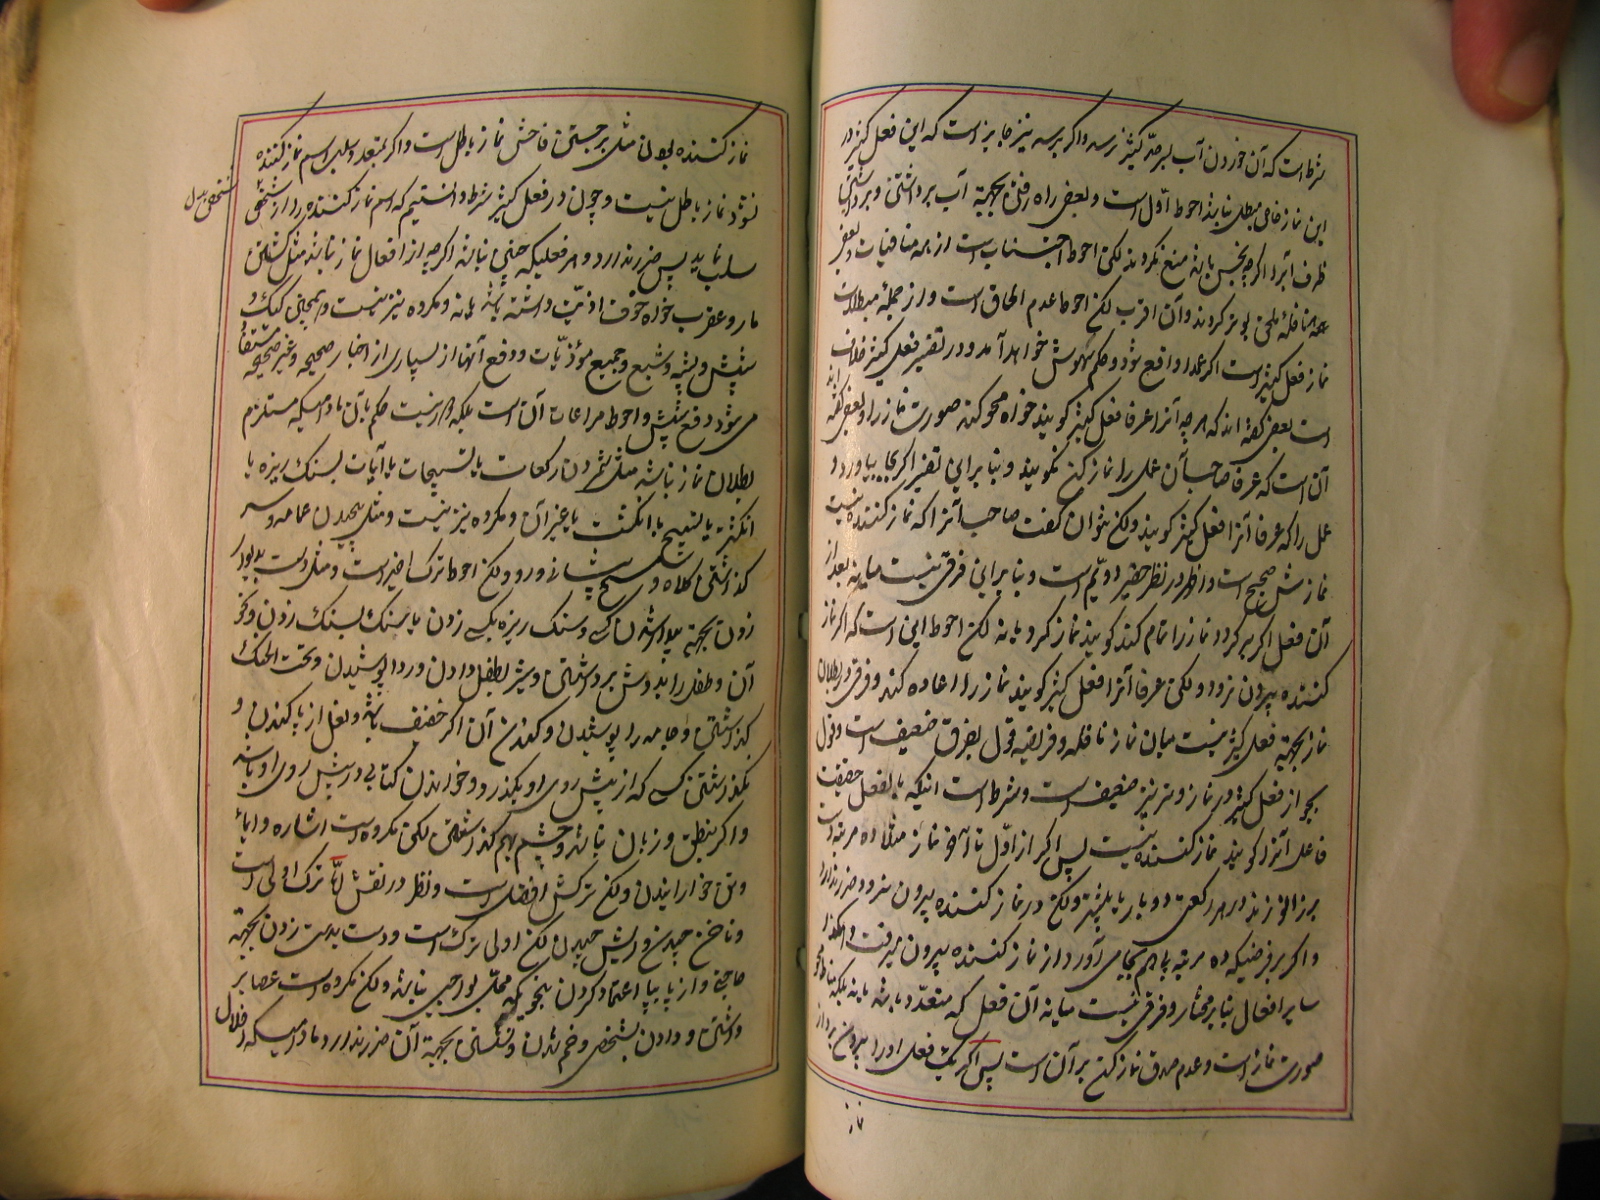 شرط است که آن خوردن آب بسر حد کثیر نرسد و اگر برسد نیز جایز است که این فعل کثیر در
این نماز خاص مبطل نباشد احوط اول است و بعض راه رفتن بجهة آب برداشتن و برداشتن
ظرف آب را اگرچه نجس باشد منع نکردند لکن احوط اجتناب است از همه منافیات و بعض
نافله ملحق بوتر کردند و آن اقرب لکن احوط عدم الحاق است و از جمله مبطلات
نماز فعل کثیر است اگر عمدا واقع شود و حکم سهوش خواهد آمد و در تفسیر فعل کثیر خلاف
است بعض گفته اند که هرچه آنرا عرفا فعل کثیر گویند خواه محو کند صورت نماز را و بعض گفته اند
آن است که عرفا صاحب آن عمل را نماز کن نگویند و بنا بر این تفسیر اگر بجا بیاورد
عمل را که عرفا آنرا فعل کثیر گویند ولکن نتوان گفت صاحب آنرا که نماز کننده نیست
نمازش صحیح است و اظهر در نظر حقیر دویم است و بنا بر این فرقی نیست میانه بعد از
آن فعل اگر برگردد نماز را تمام کند گویند نماز کرد یا نه لکن احوط این است که اگر نماز
کننده بیرون نرود ولکن عرفا آنرا فعل کثیر گویند نماز را اعاده کند و فرق در بطلان
نماز بجهة فعل کثیر نیست میان نماز نافله و فریضه و قول بفرق ضعیف است و قول
بجواز فعل کثیر در نماز وتر نیز ضعیف است و شرط است اینکه بالفعل حقیقت
فاعل آنرا گویند نماز کننده نیست پس اگر از اول تا آخر نماز مثلا ده مرتبه دست
بر زانو زند در هر رکعت دو بار یا بیشتر ولکن در نماز کننده بیرون نرود ضرر ندارد
و اگر بر فرضیکه ده مرتبه با هم بجا می آورد از نماز کننده بیرون میرفت و هکذا
سایر افعال بنا بر مختار و فرق نیست میانه آن فعل که متعدد باشد یا نه بلکه مناط محو
صورت نماز است و عدم صدق نماز کن بر آن است پس اگر یک فعل او را بیرون برد از
نماز
نماز کننده بودن مثل برجستن فاحش نماز باطل است و اگر بتعدد سلب اسم نماز کننده
نشود نماز باطل نیست و چون در فعل کثیر شرط دانستیم که اسم نماز کننده را از شخص
سلب نماید پس ضرر ندارد و هر فعلیکه چنین نباشد اگرچه از افعال نماز نباشد مثل کشتن
مار و عقرب خواه خوف اذیت داشته باشد یا نه و مکروه نیز نیست و همچنین کیک و
شپش و پشه و شبع و جمیع موذیات و دفع آنها از بسیاری از اخبار صحیحه و غیر صحیحه مستفاد
می شود دفع شپش و احوط مراعات آن است بلکه هر نیست حکم با آن مادامیکه مستلزم
بطلان نماز نباشد مثل شمردن رکعات یا تسبیحات یا آیات بسنک ریزه یا
انگشتر یا تسبیح یا انگشت یا غیر آن و مکروه نیز نیست و مثل پیچیدن عمامه و سر
گذاشتن کلاه و مسح پیشانی و رو ولکن احوط ترک اخیر است و مثل دست بدیوار
زدن بجهة بیدار شدن کسی و سنک ریزه بکسی زدن یا سنک بسنک زدن و نحو
آن و طفل را بدوش برداشتن و شیر بطفل دادن و ردا پوشیدن و تحت الحنک
گذاشتن و جامه را پوشیدن و کندن آن اگر خفیف باشد و نعل از پا کندن و
نگذاشتن کسی که از پیش روی او بگذرد و خواندن کتابی در پیش روی او باشد
و اگر بنطق و زبان نباشد و چشم بهم گذاشتن لکن مکروه است اشاره و ایماء
و تن خوارانیدن ولکن ترکش افضل است و نظر در نقش ترک اولی است
و ناخن چیدن و ریش چیدن لکن اولی ترک است و دست بدست زدن بجهة
حاجتی و از پا بپا اعتماد کردن بنحویکه مخل بواجبی نباشد ولکن مکروه است عصا بر
داشتن و دادن بشخصی و خم شدن و نشستن بجهة آن ضرر ندارد مادامیکه اخلال
شخص بدل